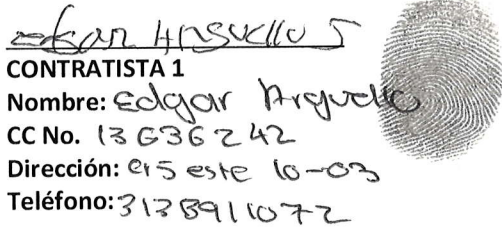 Edgar Arguello S
CONTRATISTA 1
Nombre: Edgar Arguello
CC No. 13636242
Dirección: cr 5 este 10-03
Teléfono: 3138911072